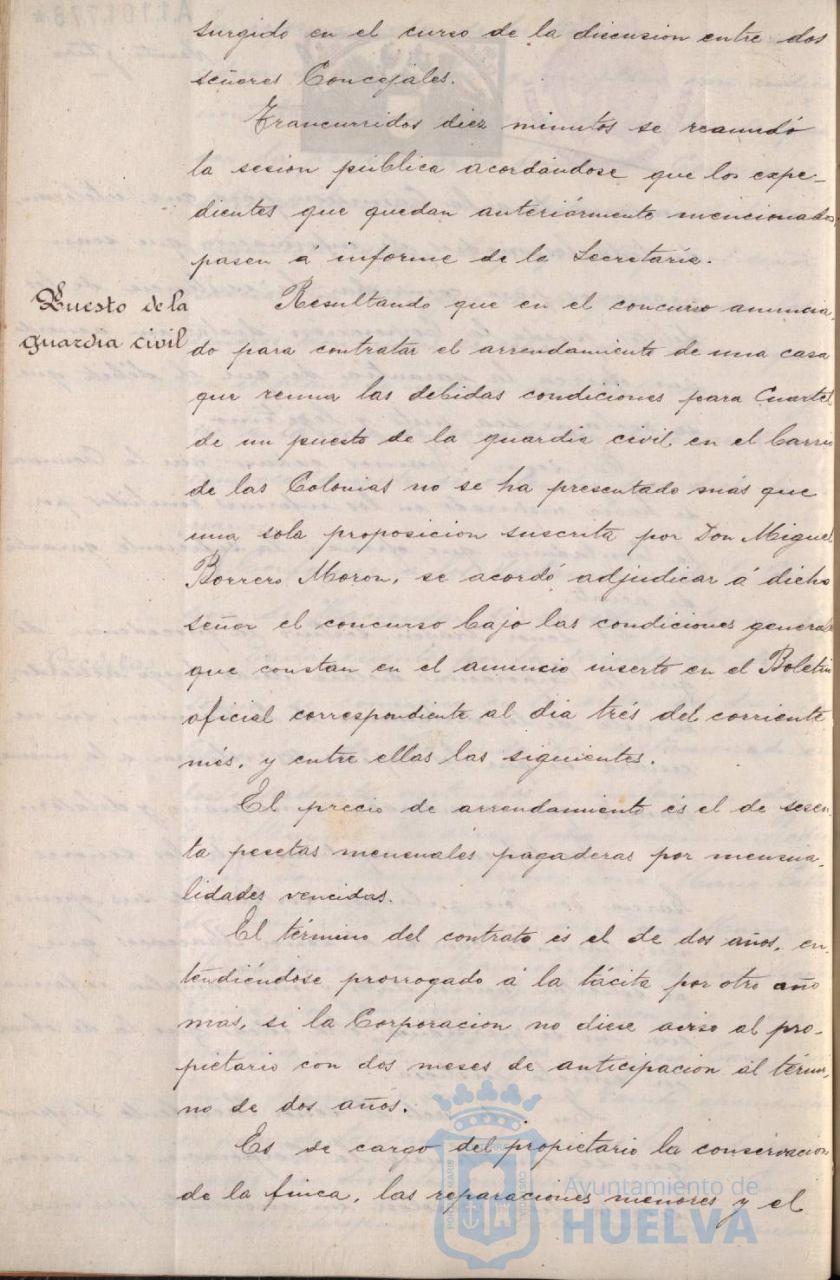 surgido en el curso de la discusion entre dos
señores Concejales.
Trancurridos diez minutos se reanudó
la sesion pública acordándose que los expe-
dientes que quedan anteriórmente mencionados,
pasen á informe de la Secretaría.
Puesto de la
guardia civil
Resultando que en el concurso anuncia-
do para contratar el arrendamiento de una casa
que reuna las debidas condiciones para Cuartel
de un puesto de la guardia civil en el barrio
de las Colonias no se ha presentado más que
una sola proposicion suscrita por Don Miguel
Borrero Moron, se acordó adjudicar á dicho
señor el concurso bajo las condiciones generales
que constan en el anuncio inserto en el Boletin
oficial correspondiente al dia trés del corriente
més, y entre ellas las siguientes.
El precio de arrendamiento és el de sesen-
ta pesetas mensuales pagaderas por mensua-
lidades vencidas.
El término del contrato és el de dos años, en-
tendiéndose prorrogado á la tácita por otro año
más, si la Corporacion no diese aviso al pro-
pietario con dos meses de anticipacion al térmi-
no de dos años.
Es de cargo del propietario la conservacion
de la finca, las reparaciones menores y el
Ayuntamiento de
HUELVA